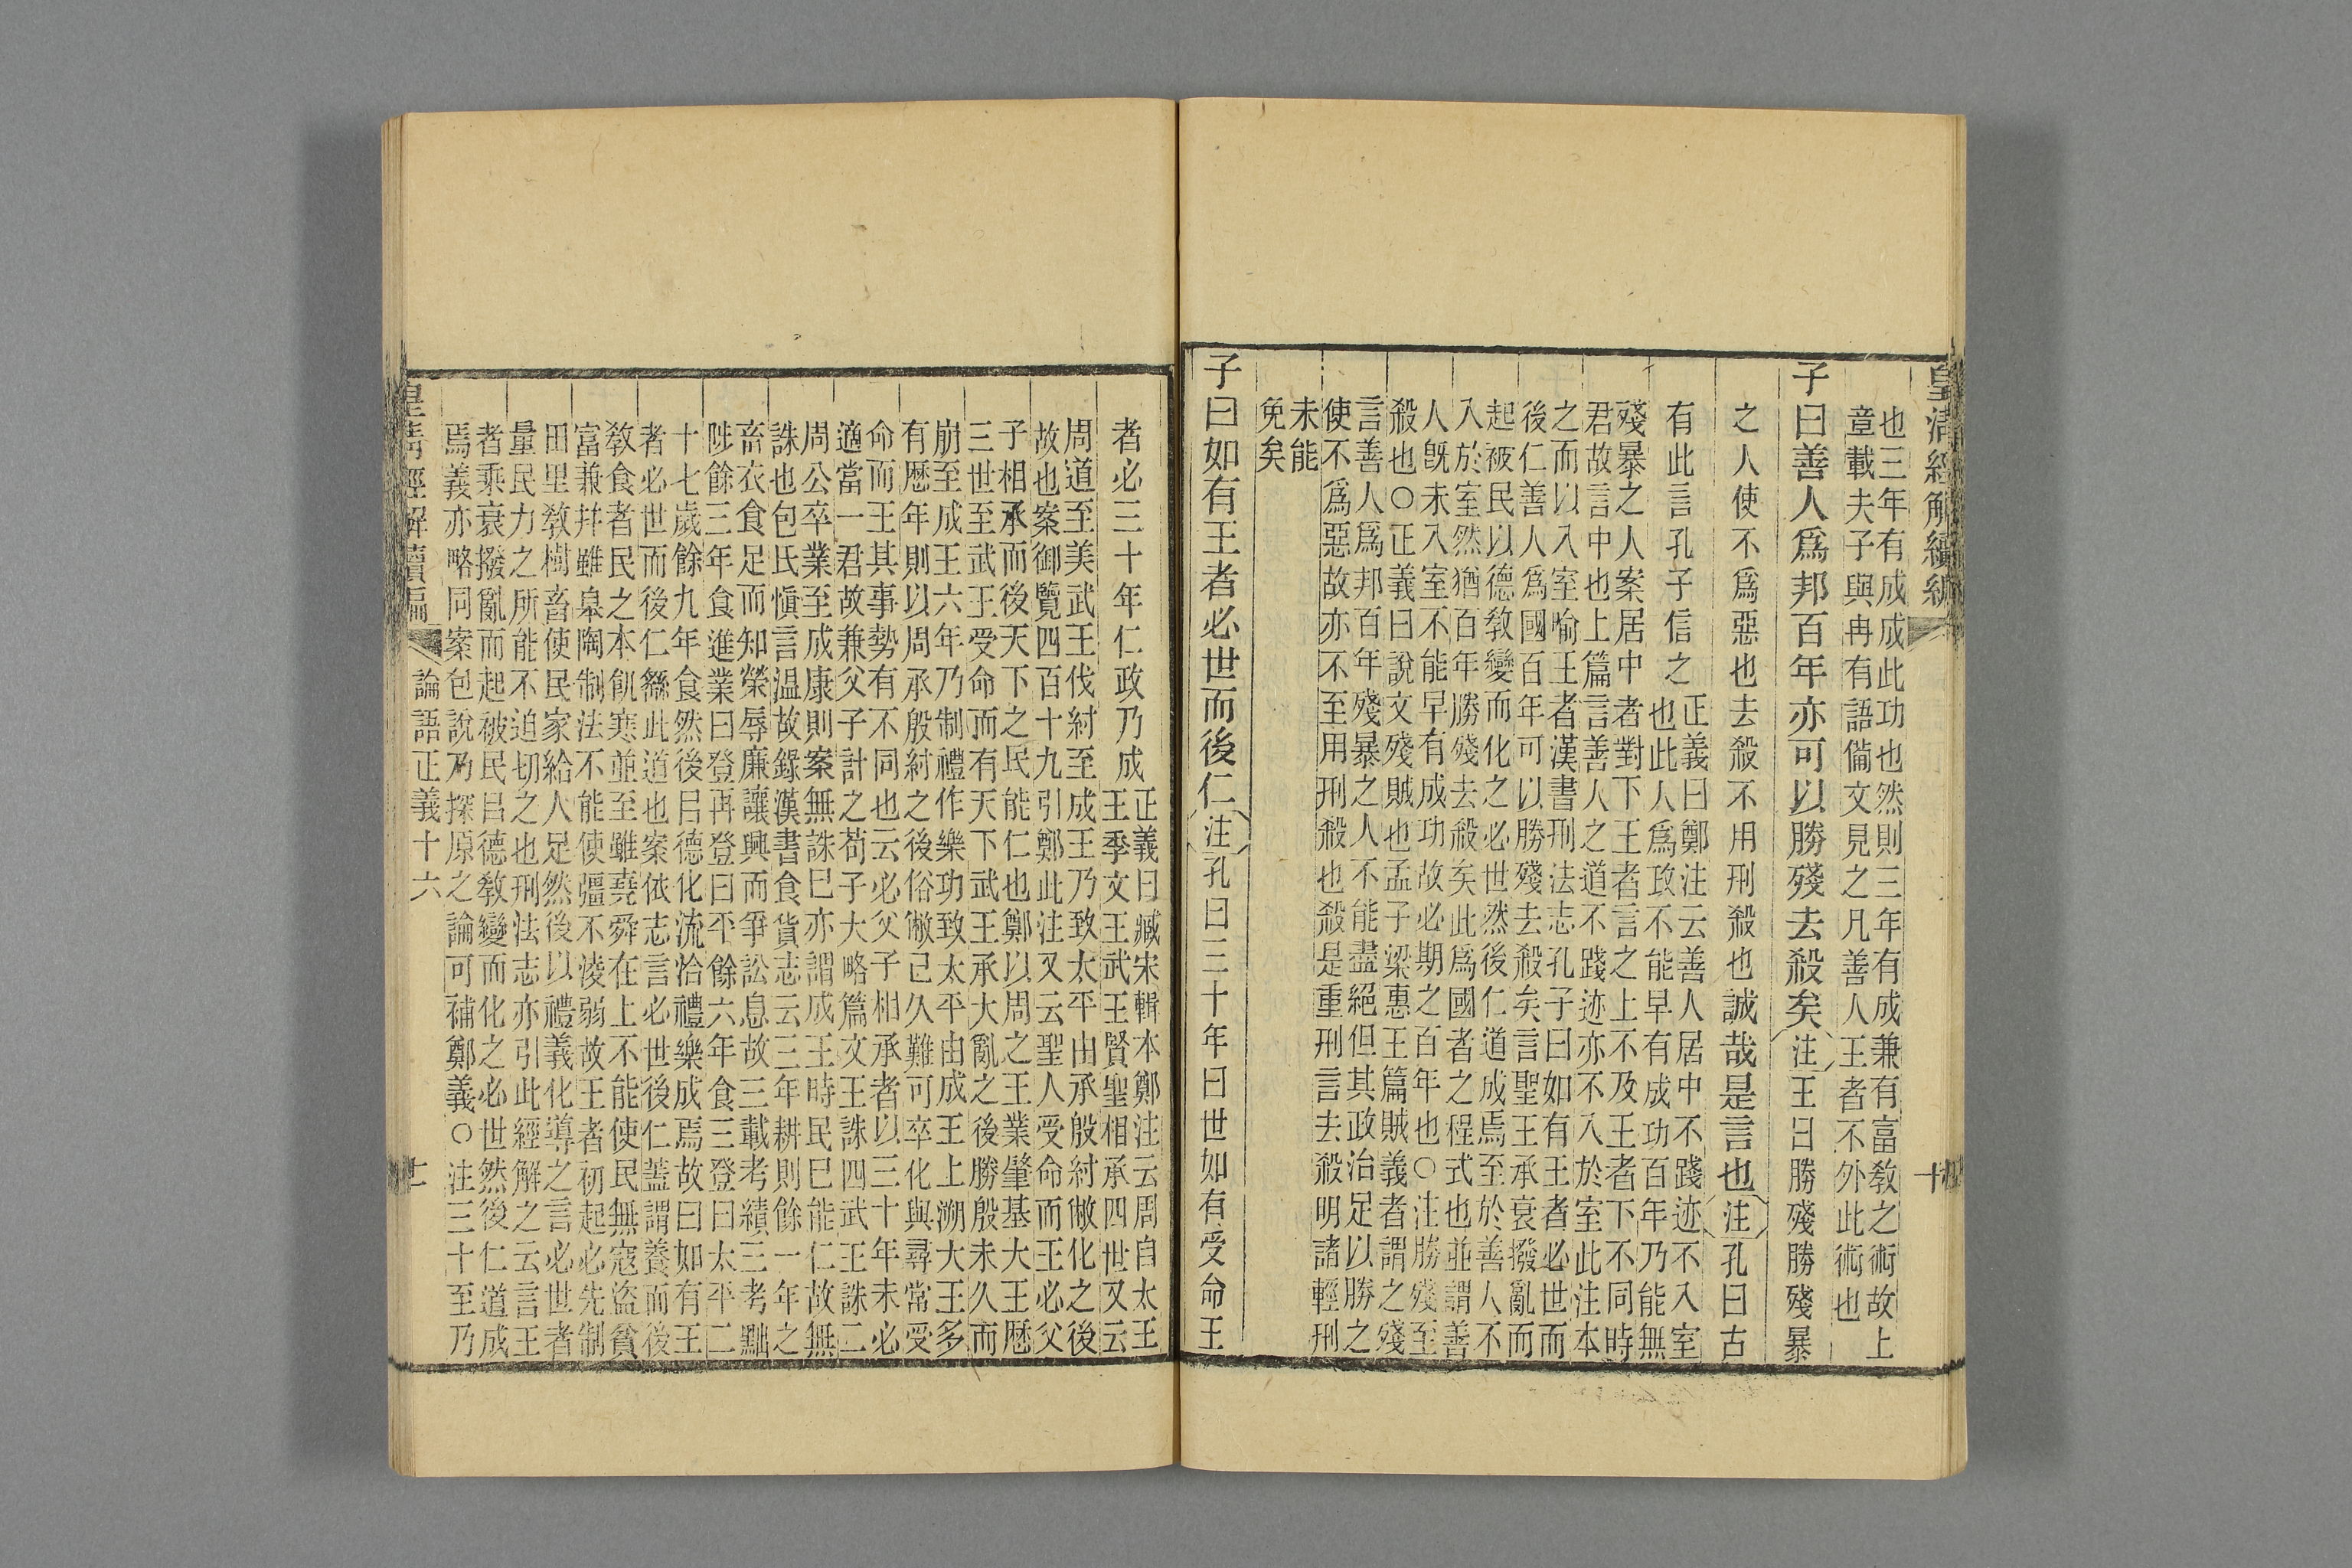 皇清經解續編
十
也三年有成成此功也然則三年有成兼有富敎之術故上
章載夫子與冉有語備文見之凡善人王者不外此術也
子曰善人爲邦百年亦可以勝殘去殺矣注王曰勝殘勝殘暴
之人使不爲惡也去殺不用刑殺也誠哉是言也注孔曰古
有此言孔子信之
正義曰鄭注云善人居中不踐迹不入室
也此人爲政不能早有成功百年乃能無
殘暴之人案居中者對下王者言之上不及王者下不同時
君故言中也上篇言善人之道不踐迹亦不入於室此注本
之而以入室喻王者漢書刑法志孔子曰如有王者必世而
後仁善人爲國百年可以勝殘去殺矣言聖王承衰撥亂而
起被民以德敎變而化之必世然後仁道成焉至於善人不
入於室然猶百年勝殘去殺矣此爲國者之程式也並謂善
人旣未入室不能早有成功故必期之百年也○注勝殘至
殺也○正義曰說文殘賊也孟子梁惠王篇賊義者謂之殘
言善人爲邦百年殘暴之人不能盡絕但其政治足以勝之
使不爲惡故亦不至用刑殺也殺是重刑言去殺明諸輕刑
未能
免矣
子曰如有王者必世而後仁注孔曰三十年曰世如有受命王
者必三十年仁政乃成
正義曰臧宋輯本鄭注云周自太王
王季文王武王賢聖相承四世又云
周道至美武王伐紂至成王乃致太平由承殷紂敝化之後
故也案御覽四百十九引鄭此注又云聖人受命而王必父
子相承而後天下之民能仁也鄭以周之王業肇基大王歷
三世至武王受命而有天下武王承大亂之後勝殷未久而
崩至成王六年乃制禮作樂功致太平由成王上溯大王多
有歷年則以周承殷紂之後俗敝已久難可卒化與尋常受
命而王其事勢有不同也云必父子相承者以三十年未必
適當一君故兼父子計之荀子大略篇文王誅四武王誅二
周公卒業至成康則案無誅巳亦謂成王時民巳能仁故無
誅也包氏愼言溫故錄漢書食貨志云三年耕則餘一年之
畜衣食足而知榮辱廉讓興而爭訟息故三載考績三考黜
陟餘三年食進業曰登再登曰平餘六年食三登曰太平二
十七歲餘九年食然後㠯德化流洽禮樂成焉故曰如有王
者必世而後仁繇此道也案依志言必世後仁蓋謂養而後
敎食者民之本飢寒並至雖堯舜在上不能使民無寇盜貧
富兼幷雖皋陶制法不能使彊不淩弱故王者初起必先制
田里敎樹畜使民家給人足然後以禮義化導之言必世者
量民力之所能不迫切之也刑法志亦引此經解之云言王
者乘衰撥亂而起被民㠯德敎變而化之必世然後仁道成
焉義亦略同案包說乃探原之論可補鄭義○注三十至乃
皇清經解續編
論語正義十六